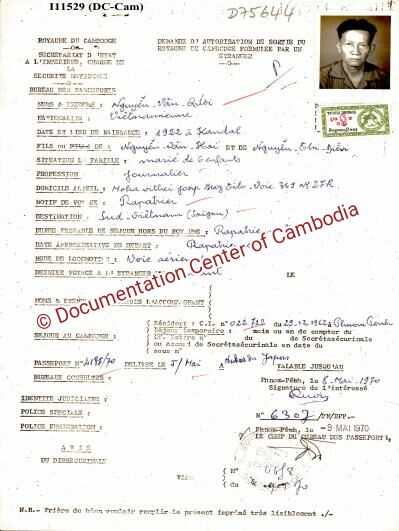 I11529 (DC-Cam)
D75644
ROYAUME DU CAMBODGE
SECRETARIAT D'ETAT
A L'INTERIEUR, CHARGE DE
LA
SECURITE NATIONALE
BUREAU DES PASSEPORTS
DEMANDE D'AUTORISATION DE SORTIE DU
ROYAUME DU CAMBODGE FORMULEE PAR UN
ETRANGER
NOMS & PRENOMS : Nguyễn-Văn-
NATIONALITE : Vietnamienne
DATE ET LIEU DE NAISSANCE : 1922 à Kandal
FILS ou FILLE DE : Nguyễn-Văn-Hai ET DE Nguyễn-Thi-
SITUATION DE FAMILLE : marié de 6 enfants
PROFESSION : Journalier
DOMICILE ACTUEL : Voie 369 Nº 27R
MOTIF DE VOYAGE : Rapatrier
DESTINATION : Sud-Viêtnam (Saigon)
DUREE PROBABLE DE SEJOUR HORS DU ROYAUME : Rapatrie
DATE APPROXIMATIVE DU DEPART : Rapatrie
MODE DE LOCOMOTION : Voie aérienne
DERNIER VOYAGE A L'ETRANGER LE
NOMS & PRENOMS L'ACCOMPAGNANT
© Documentation Center of Cambodia
SEJOUR AU CAMBODGE :
Résident : C.I. n° 028.722 du 29.12.1962 à Phnom Penh
Séjour temporaire : mois ou an de compter du
du de Secrétasécurinale
ou Accord de Secrétasécurinale en date du
sous n°
PASSEPORT N° 4198/70 DELIVRE LE 5/Mai A Ambas du Japon VALABLE JUSQU'AU
BUREAUX CONSULTES :
Phnom-Pénh, le 8-Mai-1970
Signature de l'intéressé
IDENTITE JUDICIAIRE :
POLICE SPECIALE :
POLICE IMMIGRATION :
N° 6307/PN/BPP.-
Phnom-Pénh, le - 9 MAI 1970
LE CHEF DU BUREAU DES PASSEPORTS,
A V I S
DU DIRSECURINALE
N°
N.B.- Prière de bien vouloir remplir le présent imprimé très lisiblement ./-